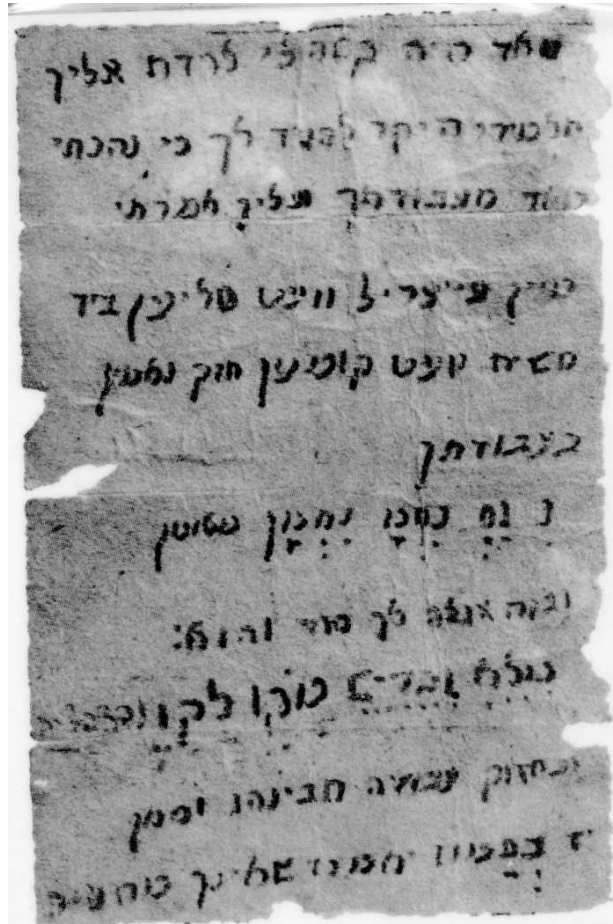 מאד היה קשה לי לרדת אליך
תלמידי היקר להגיד לך כי נהנתי
מאוד מעבודתך ועליך אמרתי
מיין פייעריל וועט טליען ביז
משיח וועט קומען חזק ואמץ
בעבודתך
נַ נַחְ נַחְמָ נַחְמָן מאומן
ובזה אגלה לך סוד והוא:
מלא וגדיש מקו לקו
ובחזוק עבודה תבינהו וסמן
יז בתמוז יאמרו שאינך מתענה